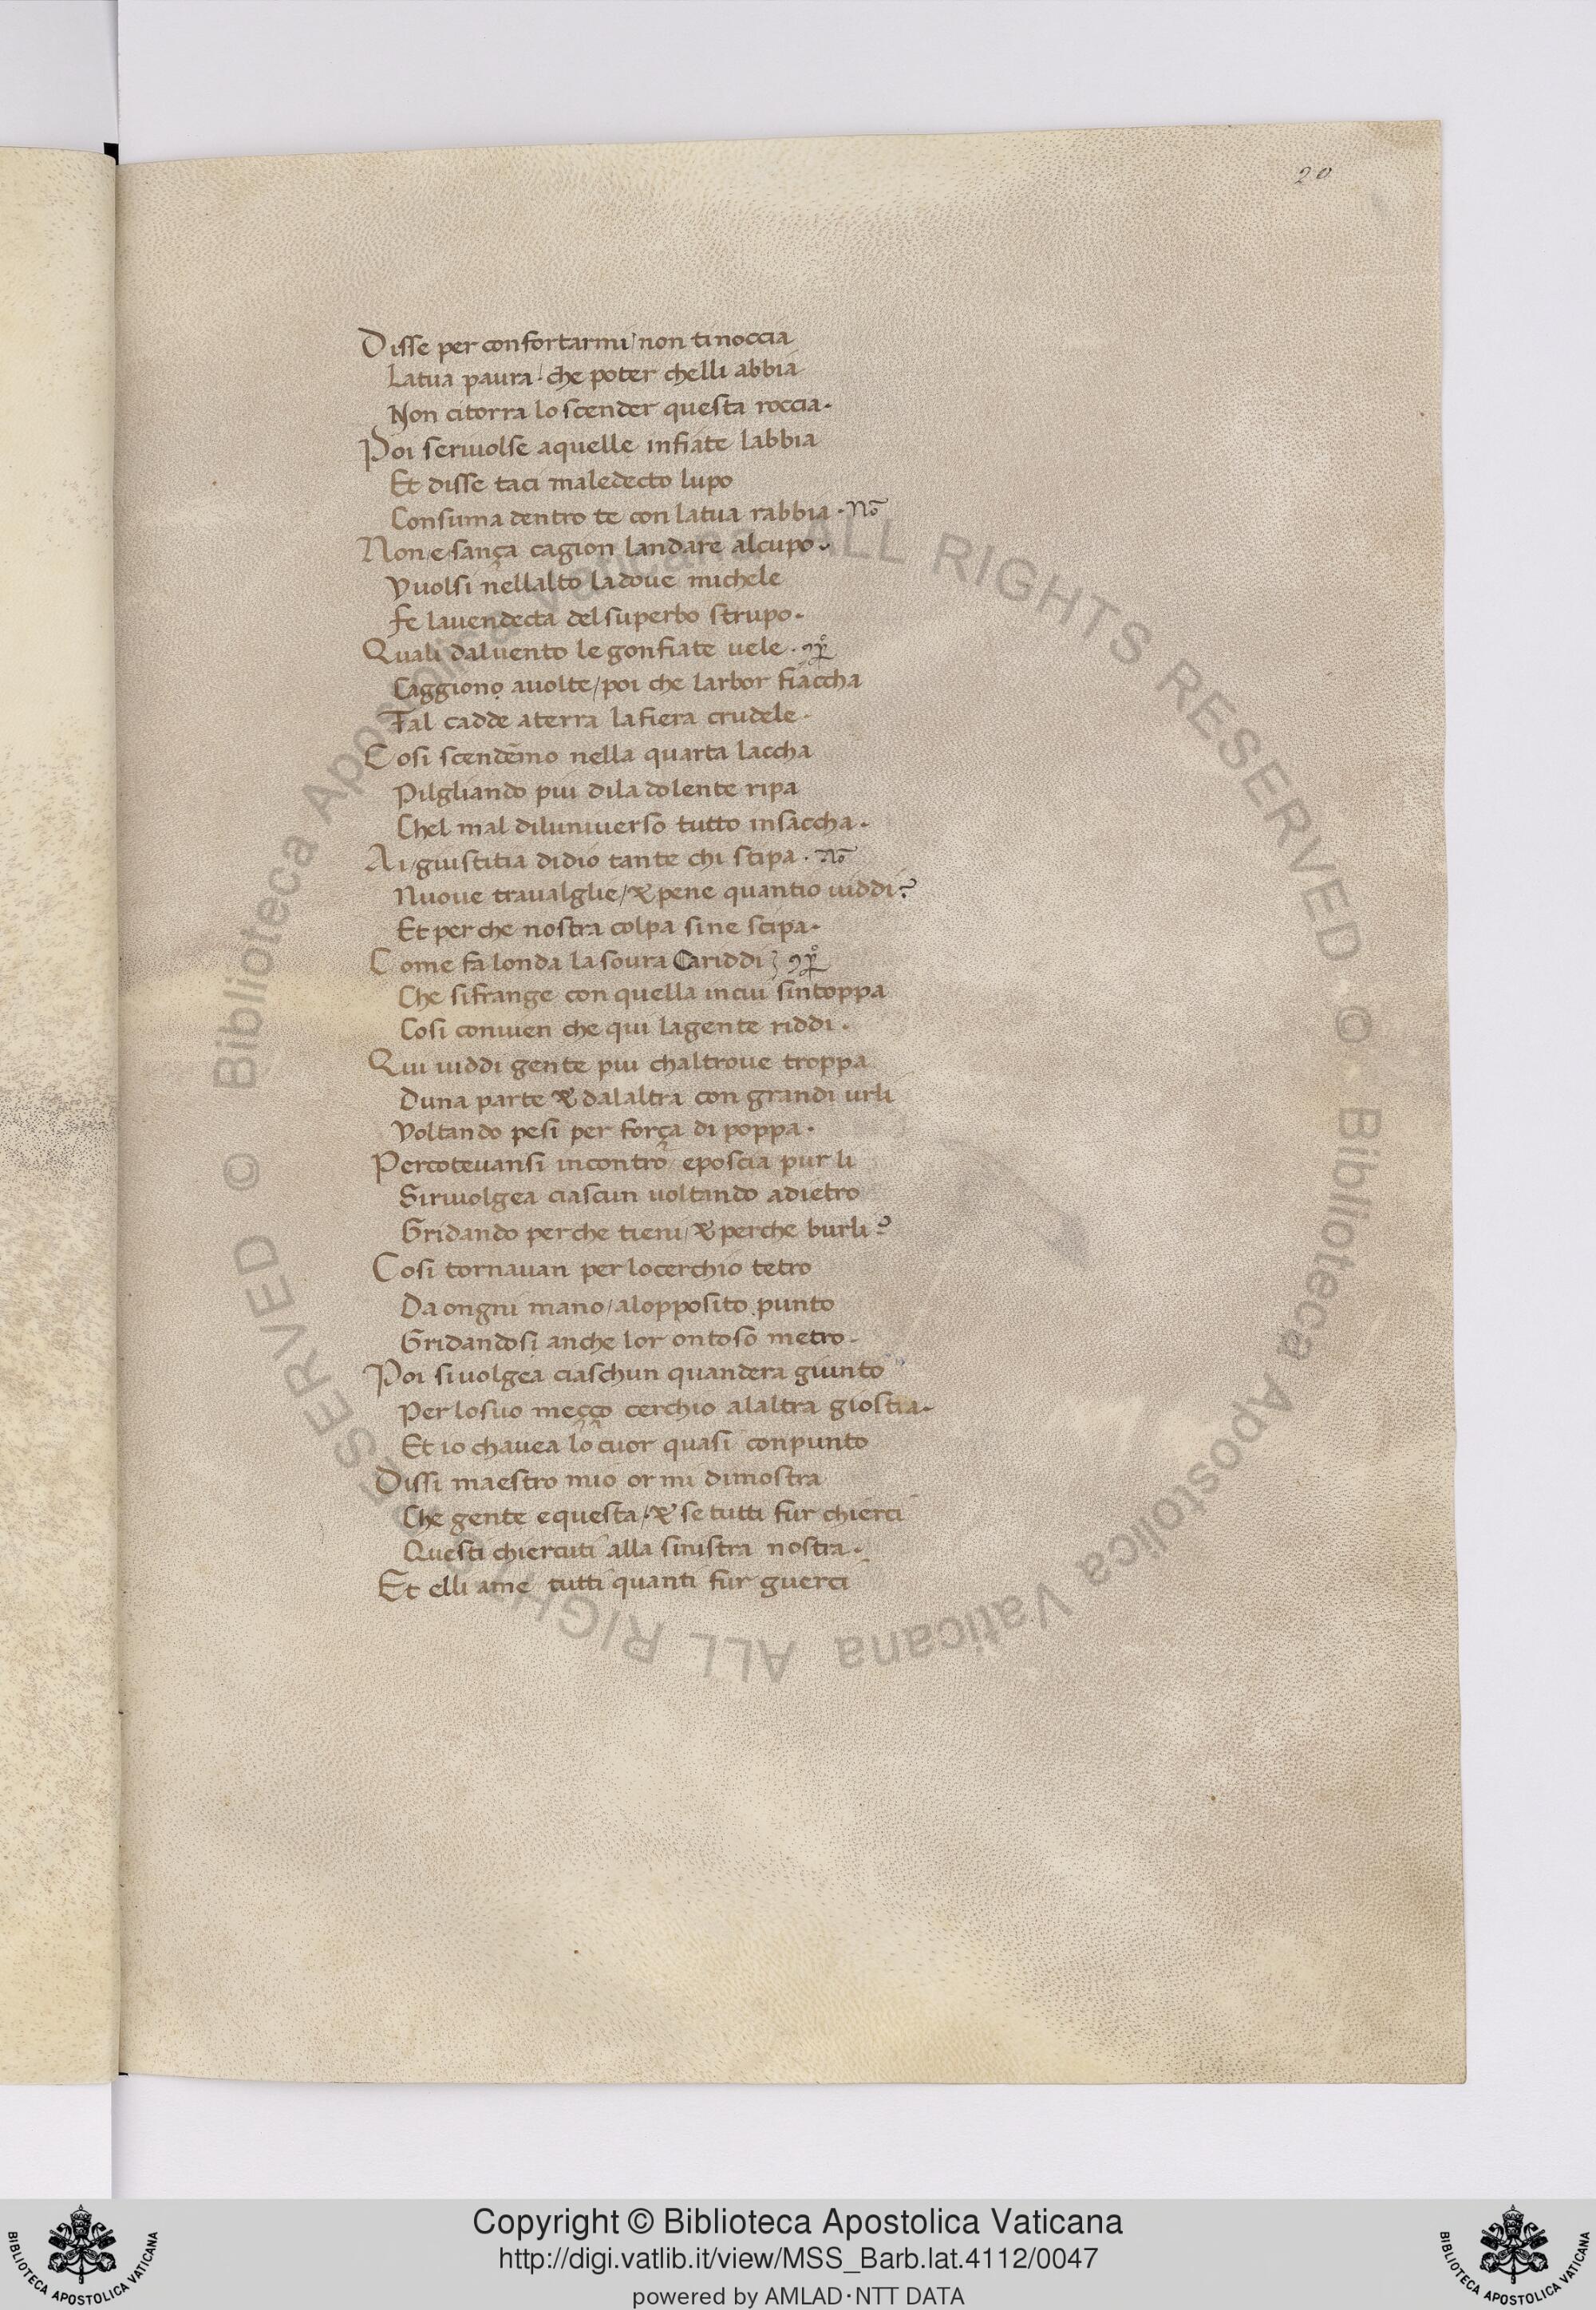 20
Disse per confortarmi/ non tinoccia
Latua paura/ che poter chelli abbia
Non citorra lo scender questa roccia.
Poi seriuolse aquelle infiate labbia
Et disse taci maledecto lupo
Consuma dentro te con latua rabbia. No
Non/e/sança cagion landare alcupo.
Vuolsi nellalto ladoue michele
Fe lauendecta delsuperbo strupo.
Quali dalvento le gonfiate uele.
Caggiono auolte/ poi che larbor fiaccha
Tal cadde aterra lafiera crudele.
Cosi scendēmo nella quarta laccha
Pilgliando piu dila dolente ripa
Chel mal diluniuerso tutto insaccha.
Ai/ giustitia didio tante chi stipa. No
Nuoue traualglie/ & pene quantio uiddi?
Et perche nostra colpa sine scipa.
Come fa londa lasoura Cariddi
Che sifrange con quella inciu sintoppa
Cosi conuien che qui lagente riddi.
Qui uiddi gente piu chaltroue troppa
Duna parte & dalaltra con grandi urli
Voltando pesi per força di poppa.
Percoteuansi incontro/ eposcia pur li
Siriuolgea ciascun uoltando adietro
Gridando perche tieni/ & perche burli?
Cosi tornauan per locerchio tetro
Da ongni mano/ alopposito punto
Gridandosi anche lor ontoso metro.
Poi siuolgea ciaschun quandera giunto
Per losuo meçço cerchio alaltra giostra.
Et io chauea lo cuor quasi conpunto
Dissi maestro mio or mi dimostra
Che gente equesta/ & se tutti fur chierci
Questi chiercuti alla sinistra nostra.
Et elli ame tutti quanti fur guerci
© Biblioteca Apostolica Vaticana ALL RIGHTS RESERVED © Biblioteca Apostolica Vaticana ALL RIGHTS RESERVED
Copyright © Biblioteca Apostolica Vaticana
http://digi.vatlib.it/view/MSS_Barb.lat.4112/0047
powered by AMLAD·NTT DATA
BIBLIOTECA APOSTOLICA VATICANA
BIBLIOTECA APOSTOLICA VATICANA